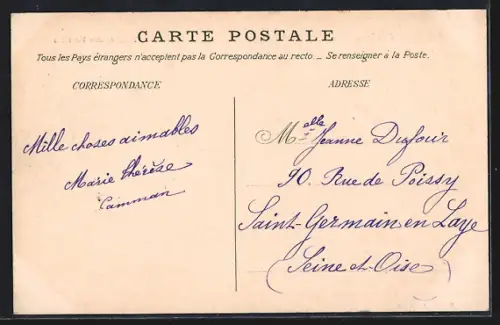 CARTE POSTALE
Tous les Pays étrangers n'acceptent pas la Correspondance au recto. _ Se renseigner à la Poste.
CORRESPONDANCE
Mille choses aimables
Marie Thérèse
Camman
ADRESSE
Melle Jeanne Dufour
90. Rue de Poissy
Saint-Germain en Laye
(Seine et-Oise)